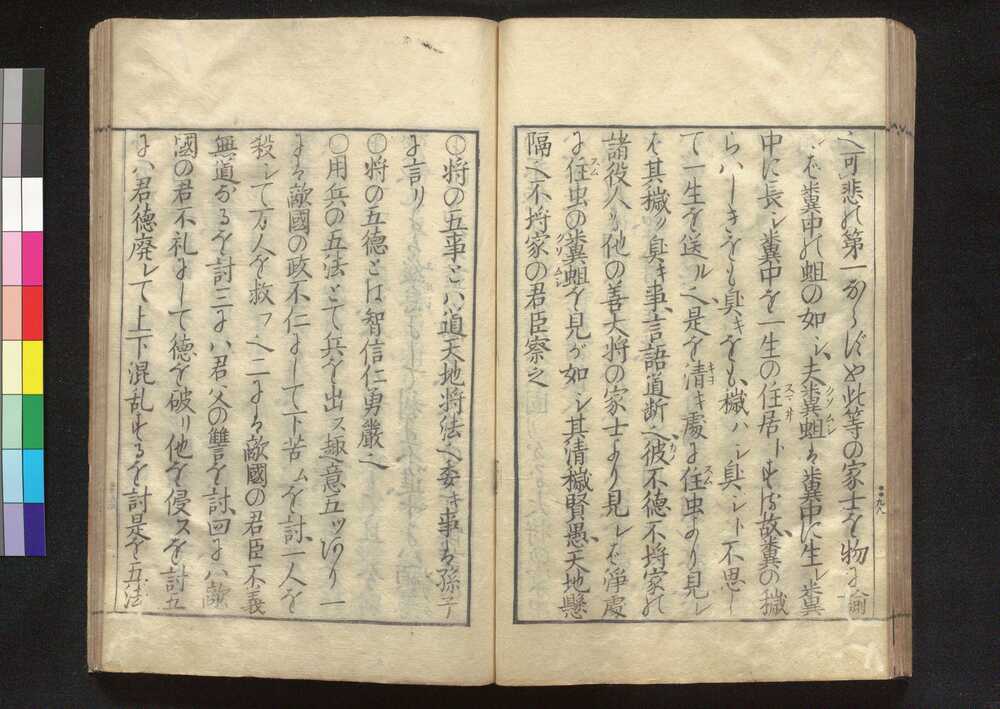 之可悲れ第一ならずや此等の家士を物に諭
れば糞中の蛆の如シ夫糞蛆は糞中に生レ糞
中に長シ糞中を一生の住居トする故糞の穢
らハしきをも臭キをも穢ハル臭シト不思し
て一生を送ル之是を清キ處に住虫より見レ
ば其穢ク臭キ事言語道断之彼不徳不将家の
諸役人ヲ他の善大将の家士より見レば浄處
に住虫の糞蛆を見ルが如シ其清穢賢愚天地懸
隔之不将家の君臣察之
〇将の五事とハ道天地将法之委キ事は孫子
に言リ
〇将の五徳とは智信仁勇嚴之
〇用兵の五法とて兵を出ス趣意五ツあり一
には敵國の政不仁にして下苦ムを討一人を
殺して万人を救フ之二には敵國の君臣不義
無道なるを討三にハ君父の讐を討四にハ敵
國の君不礼にして徳を破り他を侵スを討五
にハ君徳廃レて上下混乱するを討是を五法